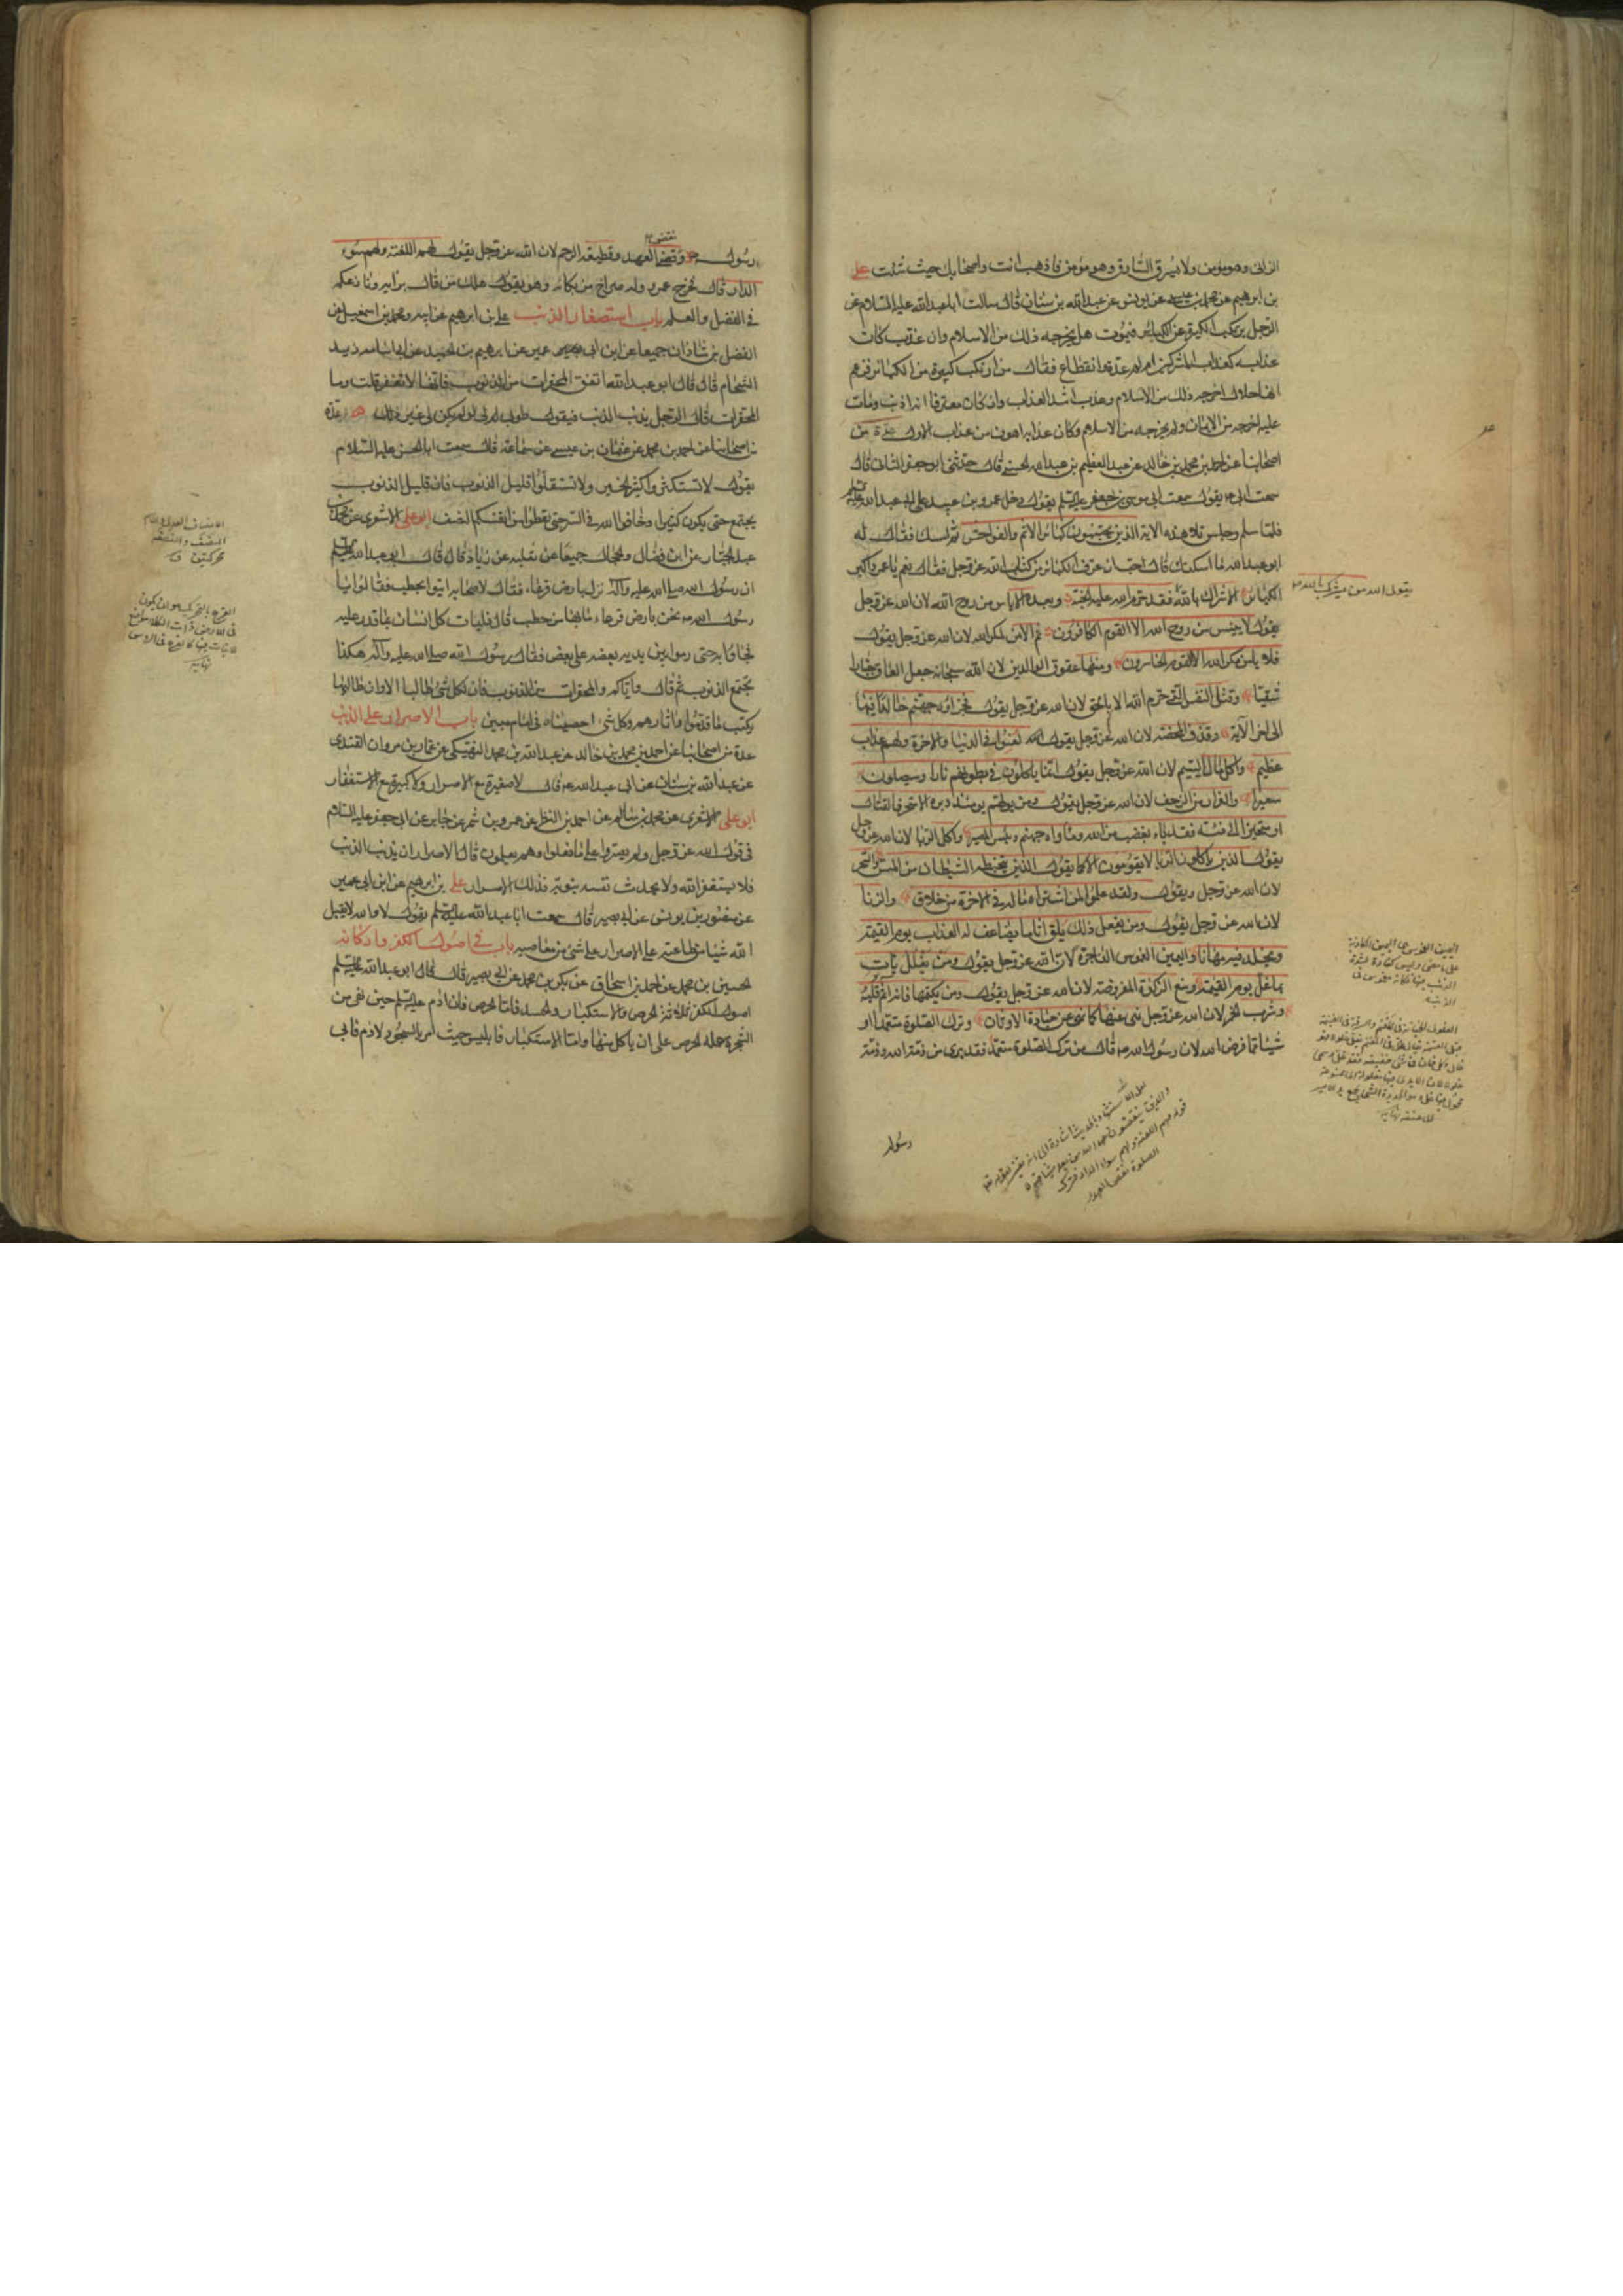 الزانى وهو مؤمن ولا يسرق السّارق وهو مؤمن فاذهب انت واصحابك حيث شئت على
بن ابرهيم عن محمد بن عيسى عن يونس عن عبدالله بن سنان قال سالت اباعبدالله عليه السلام عن
الرجل يرتكب الكبيرة من الكبائر فيموت هل يخرجه ذلك من الاسلام وان عذب كان
عذابه كعذاب المشركين ام له مدة وانقطاع فقال من ارتكب كبيرة من الكبائر فزعم
انها حلال اخرجه ذلك من الاسلام وعذب اشد العذاب وان كان معترفا انه اذنب ومات
عليه اخرجه من الايمان ولم يخرجه من الاسلام وكان عذابه اهون من عذاب الاول عدة من
اصحابنا عن احمد بن محمد بن خالد عن عبد العظيم بن عبدالله الحسنى قال حدثنى ابو جعفر الثانى قال
سمعت ابى يقول سمعت ابى موسى بن جعفر عليه السلم يقول دخل عمرو بن عبيد على ابى عبدالله عليه السلم
فلما سلم وجلس تلا هذه الاية الذين يجتنبون كبائر الاثم والفواحش ثم امسك فقال له
ابو عبدالله ما اسكتك قال احب ان اعرف الكبائر من كتاب الله عز وجل فقال نعم يا عمرو اكبر
الكبائر الاشراك بالله فقد حرم الله عليه الجنة وبعده الاياس من روح الله لان الله عز وجل
يقول لا ييئس من روح الله الا القوم الكافرون ثم الامن لمكر الله لان الله عز وجل يقول
فلا يامن مكر الله الا القوم الخاسرون ومنها عقوق الوالدين لان الله سبحانه جعل العاق جبارا
شقيا وقتل النفس التى حرم الله الا بالحق لان الله عز وجل يقول فجزاؤه جهنم خالدا فيها
الى اخر الآية وقذف المحصنة لان الله عز وجل يقول لعنوا فى الدنيا والاخرة ولهم عذاب
عظيم واكل مال اليتيم لان الله عز وجل يقول انما ياكلون فى بطونهم نارا وسيصلون
سعيرا والفرار من الزحف لان الله عز وجل يقول ومن يولهم يومئذ دبره الا متحرفا لقتال
او متحيزا الى فئة فقد باء بغضب من الله وماواه جهنم وبئس المصير واكل الربا لان الله عز وجل
يقول الذين ياكلون الربا لا يقومون الا كما يقوم الذى يتخبطه الشيطان من المس والسحر
لان الله عز وجل يقول ولقد علموا لمن اشتراه ما له فى الاخرة من خلاق والزنا
لان الله عز وجل يقول ومن يفعل ذلك يلق اثاما يضاعف له العذاب يوم القيمة
ويخلد فيه مهانا واليمين الغموس الفاجرة لان الله عز وجل يقول ومن يغلل يات
بما غل يوم القيمة ومنع الزكوة المفروضة لان الله عز وجل يقول ومن يكتمها فانه آثم قلبه
وشرب الخمر لان الله عز وجل نهى عنها كما نهى عن عبادة الاوثان وترك الصلوة متعمدا او
شيئا مما فرض الله لان رسول الله قال من ترك الصلوة متعمدا فقد برئ من ذمة الله وذمة
رسوله
يقول الله من يشرك بالله
رسول ونقض العهد وقطيعة الرحم لان الله عز وجل يقول لهم اللعنة ولهم سوء
الدار قال فخرج عمرو وله صراخ من بكائه وهو يقول هلك من قال برايه ونازعكم
فى الفضل والعلم باب استصغار الذنب على بن ابرهيم عن ابيه ومحمد بن اسمعيل عن
الفضل بن شاذان جميعا عن ابن ابى عمير عن ابرهيم بن عبد الحميد عن ابى اسامه زيد
الشحام قال قال ابو عبدالله اتقوا المحقرات من الذنوب فانها لا تغفر قلت وما
المحقرات قال الرجل يذنب الذنب فيقول طوبى لى لو لم يكن لى غير ذلك عدة
من اصحابنا عن احمد بن محمد عن عثمان بن عيسى عن سماعة قال سمعت ابا الحسن عليه السلام
يقول لا تستكثروا كثير الخير ولا تستقلوا قليل الذنوب فان قليل الذنوب
يجتمع حتى يكون كثيرا وخافوا الله فى السر حتى تعطوا من انفسكم النصف ابو على الاشعرى عن محمد بن
عبد الجبار عن ابن فضال والحجال جميعا عن ثعلبه عن زياد قال قال ابو عبدالله عليه السلم
ان رسول الله صلى الله عليه وآله نزل بارض قرعاء فقال لاصحابه ايتوا بحطب فقالوا يا
رسول الله نحن بارض قرعاء ما بها من حطب قال فليات كل انسان بما قدر عليه
فجاؤا به حتى رموا بين يديه بعضه على بعض فقال رسول الله صلى الله عليه وآله هكذا
تجتمع الذنوب ثم قال واياكم والمحقرات من الذنوب فان لكل شئ طالبا الا وان طالبها
يكتب ما قدموا وآثارهم وكل شئ احصيناه فى امام مبين باب الاصرار على الذنب
عدة من اصحابنا عن احمد بن محمد بن خالد عن عبدالله بن محمد النهيكى عن عمار بن مروان القندى
عن عبدالله بن سنان عن ابى عبدالله قال لا صغيرة مع الاصرار ولا كبيرة مع الاستغفار
ابو على الاشعرى عن محمد بن سالم عن احمد بن النضر عن عمرو بن شمر عن جابر عن ابى جعفر عليه السلام
فى قول الله عز وجل ولم يصروا على ما فعلوا وهم يعلمون قال الاصرار ان يذنب الذنب
فلا يستغفر الله ولا يحدث نفسه بتوبة فذلك الاصرار على بن ابرهيم عن ابن ابى عمير
عن منصور بن يونس عن ابى بصير قال سمعت ابا عبدالله عليه السلم يقول لا والله لا يقبل
الله شيئا من طاعته على الاصرار على شئ من معاصيه باب فى اصول الكفر واركانه
الحسين بن محمد عن احمد بن اسحاق عن بكر بن محمد عن ابى بصير قال قال ابو عبدالله عليه السلم
اصول الكفر ثلاثة الحرص والاستكبار والحسد فاما الحرص فان آدم عليه السلم حين نهى من
الشجرة حمله الحرص على ان ياكل منها واما الاستكبار فابليس حيث امر بالسجود لآدم فابى